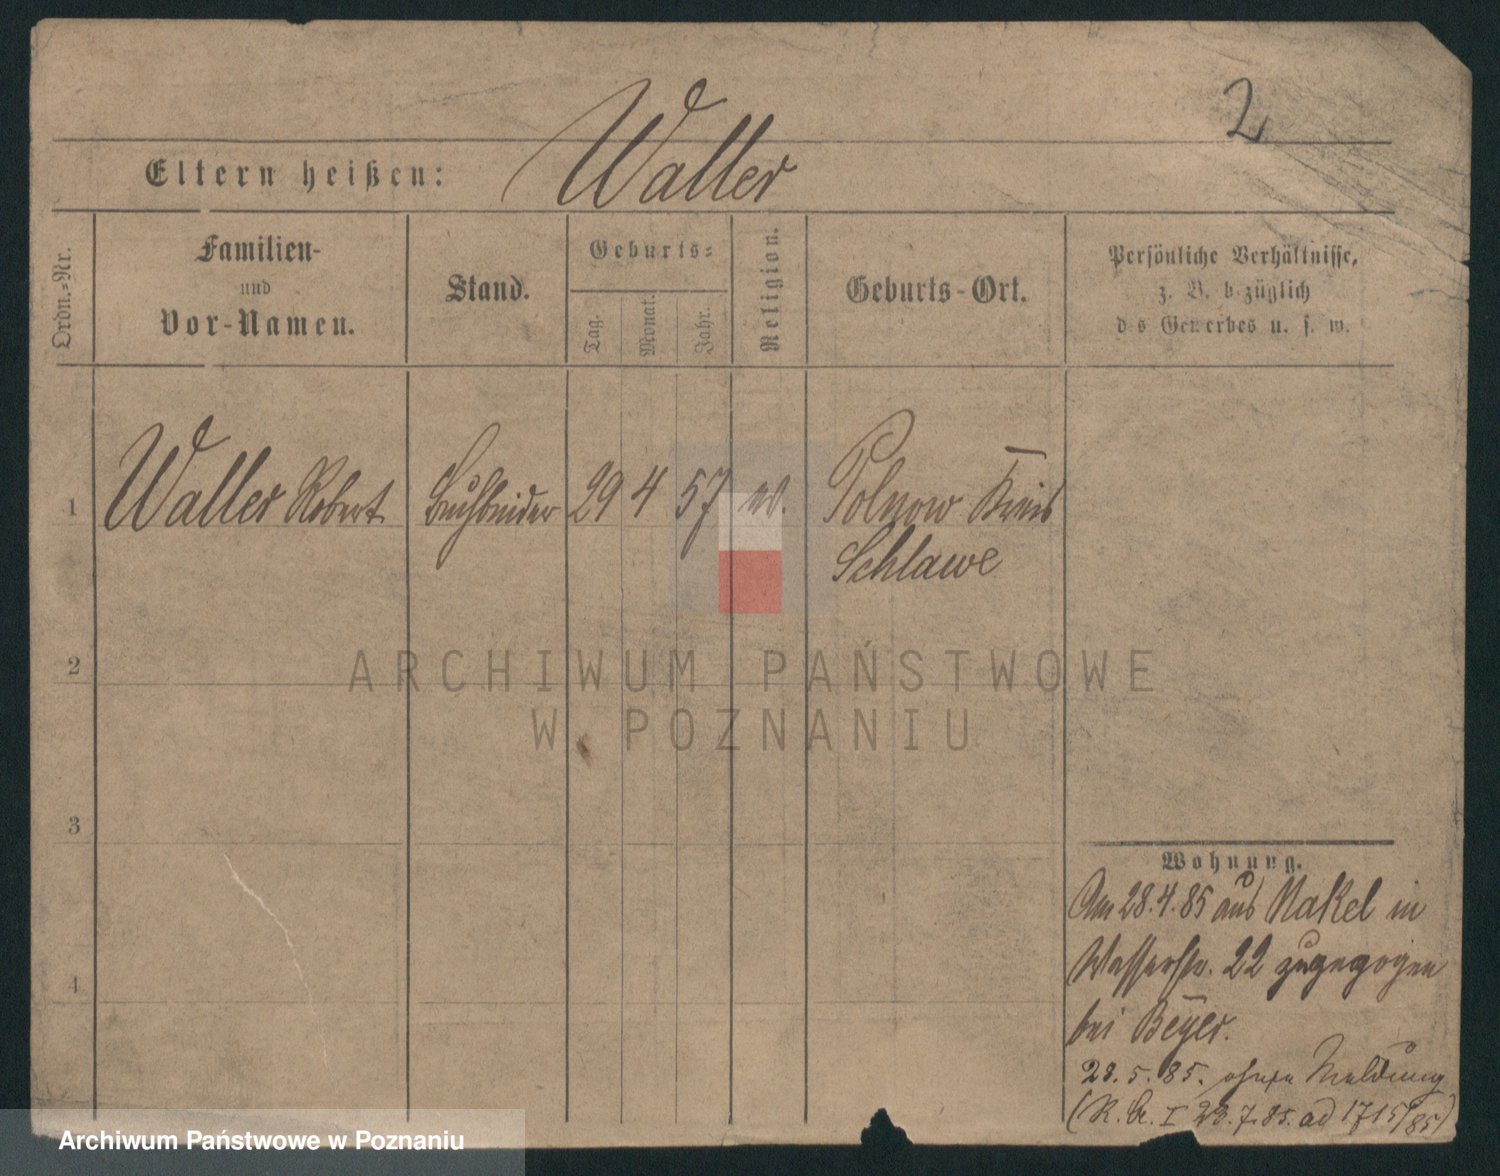 2
Eltern heißen: Waller
Ordn.-Nr.
Familien-
und
Vor-Namen.
Stand.
Geburts-
Tag.
Monat.
Jahr.
Religion.
Geburts-Ort.
Persönliche Verhältnisse,
z. B. bezüglich
des Gewerbes u. s. w.
1 Waller Robert Buchbinder 29 4 57 ev. Polnow Kreis
Schlawe
2
3
4
Wohnung.
Am 28.4.85 aus Nakel in
Wasserstr. 22 zugezogen
bei Beyer.
28.5.85. ohne Meldung
(R. A. I 23.7.85. ad 1715/85)
ARCHIWUM PAŃSTWOWE
W POZNANIU
Archiwum Państwowe w Poznaniu